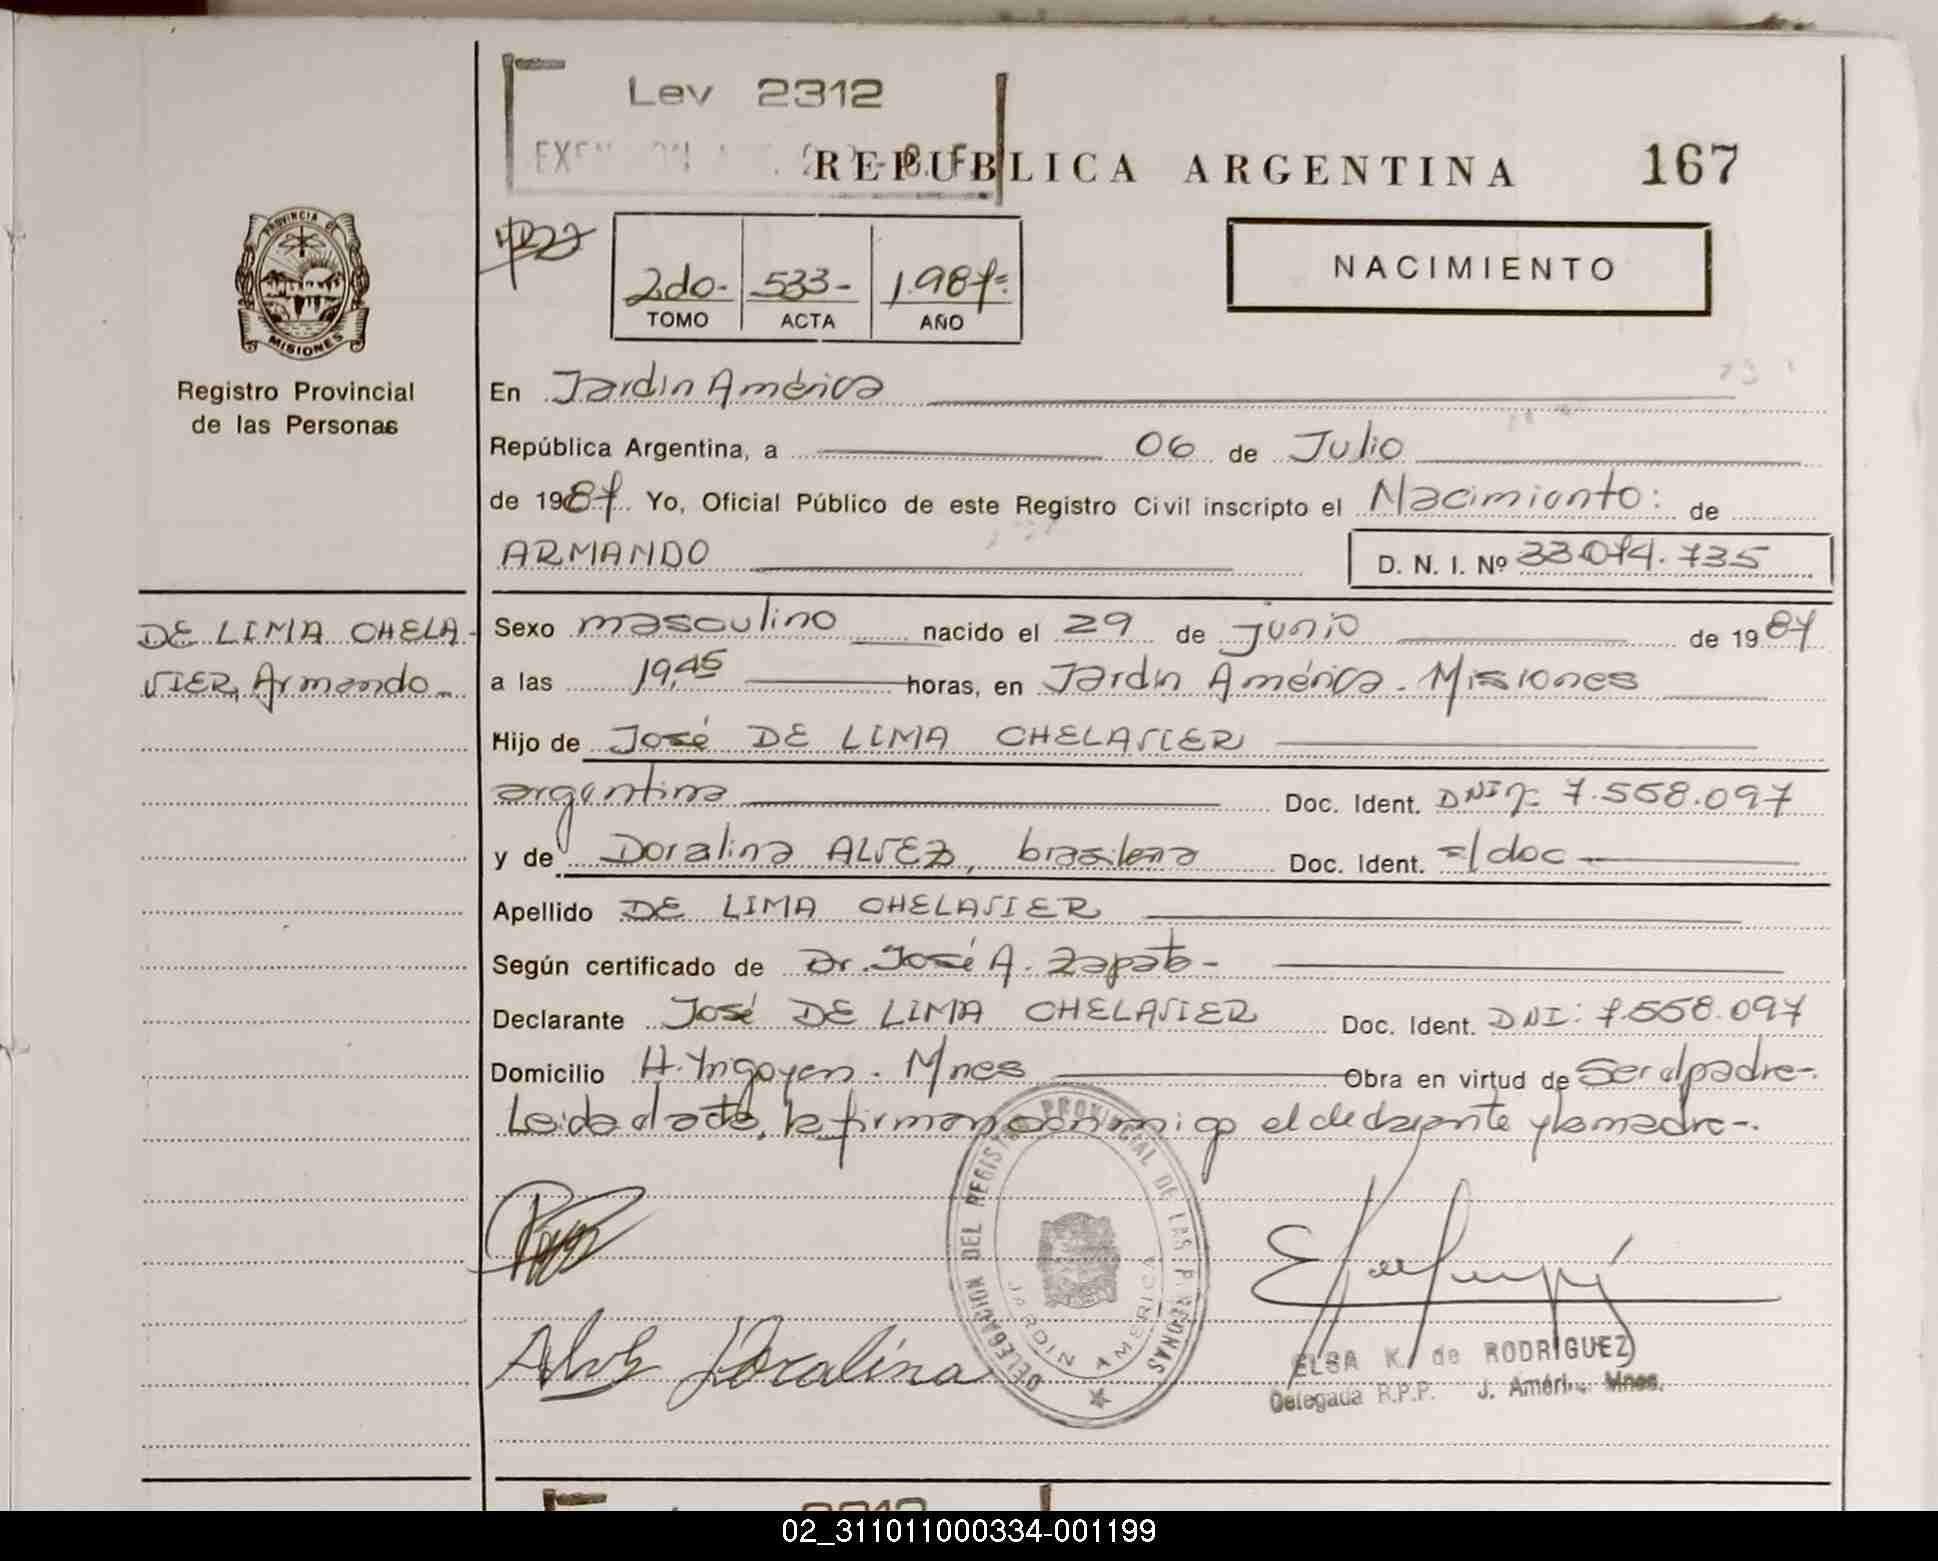 Ley 2312
REPUBLICA ARGENTINA 167
PROVINCIA DE
MISIONES
Registro Provincial
de las Personas
2do- 533- 1.987=
TOMO ACTA AÑO
NACIMIENTO
En Jardin América
República Argentina, a 06 de Julio
de 1987. Yo, Oficial Público de este Registro Civil inscripto el Nacimiento: de
ARMANDO D. N. I. Nº 33.074.735
DE LIMA CHELA-
VIER, Armando-
Sexo masculino nacido el 29 de junio de 1987
a las 19,45 horas, en Jardin América. Misiones
Hijo de José DE LIMA CHELAVIER
argentina Doc. Ident. DNI 7.558.097
y de Doralina ALVEZ, brasilena Doc. Ident. s/doc
Apellido DE LIMA CHELAVIER
Según certificado de Dr. José A. Zapata-
Declarante José DE LIMA CHELAVIER Doc. Ident. DNI: 7.558.097
Domicilio H. Yrigoyen. Mnes Obra en virtud de Ser el padre-.
Leida el acta, la firman conmigo el declarante y la madre-.
DELEGACION DEL REGISTRO PROVINCIAL DE LAS PERSONAS
JARDIN AMERICA
Doralina
ELSA K. de RODRIGUEZ
Delegada R.P.P. J. Améri.. Mnes.
02_311011000334-001199